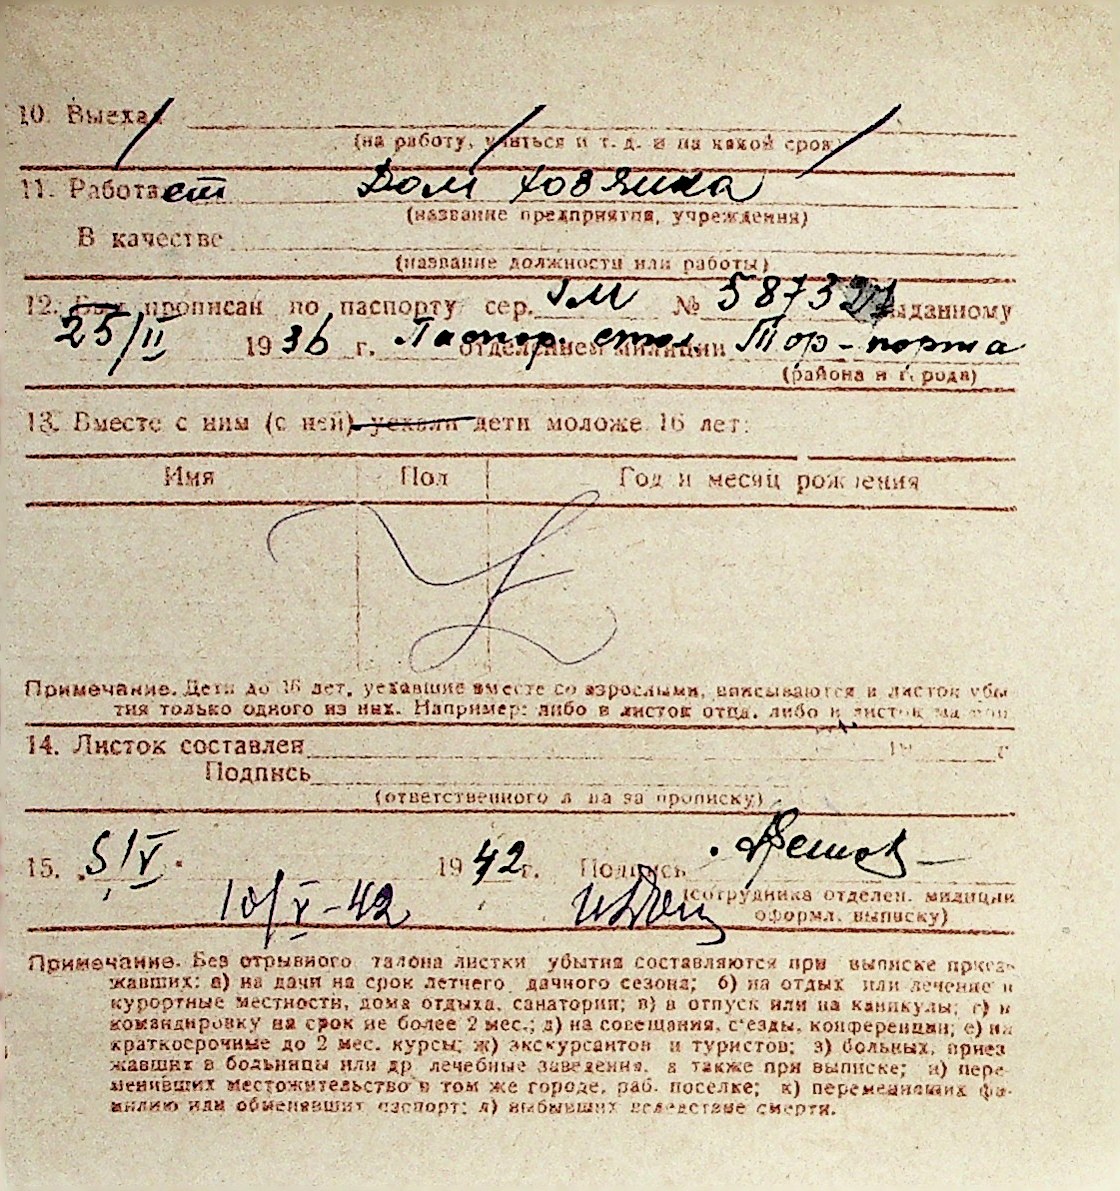 10. Выехал
(на работу, учиться и т. д. и на какой срок)
11. Работает Дом хозяика
(название предприятия, учреждения)
В качестве
(название должности или работы)
12. Был прописан по паспорту сер. № 587327 выданному
25/II 1936 г. Паспор. стол. отделением милиции Тор-порта
(района и города)
13. Вместе с ним (с ней) уехали дети моложе 16 лет:
Имя Пол Год и месяц рождения
Примечание. Дети до 16 лет, уехавшие вместе со взрослыми, вписываются в листок убы-
тия только одного из них. Например: либо в листок отца, либо в листок матери
14. Листок составлен 19 г
Подпись
(ответственного лица за прописку)
15. 5/V 1942 г. Подпись
(сотрудника отделен. милиции
10/V-42 оформл. выписку)
Примечание. Без отрывного талона листки убытия составляются при выписке приез-
жавших: а) на дачи на срок летнего дачного сезона; б) на отдых или лечение в
курортные местности, дома отдыха, санатории; в) в отпуск или на каникулы; г) в
командировку на срок не более 2 мес.; д) на совещания, с'езды, конференции; е) на
краткосрочные до 2 мес. курсы; ж) экскурсантов и туристов; з) больных, приез
жавших в больницы или др. лечебные заведения, а также при выписке; и) пере-
менивших местожительство в том же городе, раб. поселке; к) переменивших фа-
милию или обменявших паспорт; л) выбывших вследствие смерти.